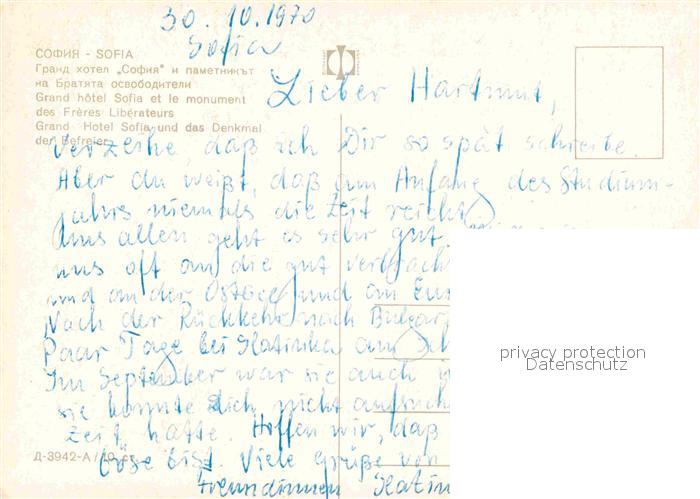 30. 10. 1970
Sofia
СОФИЯ - SOFIA
Гранд хотел „София" и паметникът
на Братята освободители
Grand hôtel Sofia et le monument
des Frères Libérateurs
Grand Hotel Sofia und das Denkmal
der Befreier
Lieber Hartmut,
Verzeihe, daß ich Dir so spät schreibe.
Aber du weißt, daß am Anfang des Studium-
jahrs niemals die Zeit reicht.
Uns allen geht es sehr gut.
uns oft an die gut verbrach
und an der Ostsee und an
Nach der Rückkehr nach Bulgar
Paar Tage bei Slatinka am Sch
Im September war sie auch
sie konnte Dich nicht aufsuche
Zeit hatte. Hoffen wir, daß
böse bist. Viele Grüße von
Freundinnen Slatin
Д-3942-А
privacy protection
Datenschutz